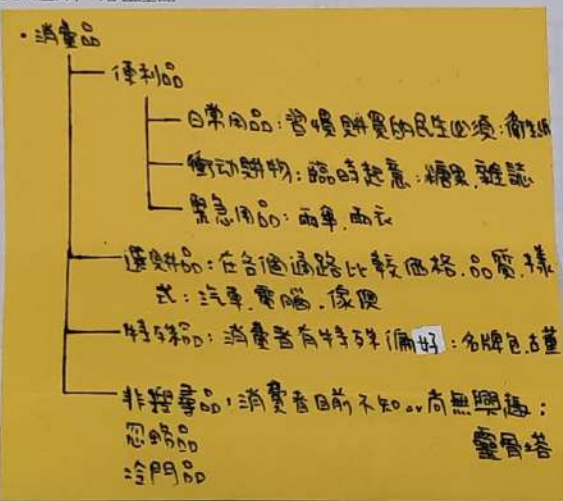 ・消費品
便利品
日常用品：習慣購買的民生必須：衛生紙
衝动購物：臨時起意：糖果.雜誌
緊急用品：雨傘.雨衣
選購品：在各個通路比較價格.品質.樣
式：汽車.電腦.傢俱
特殊品：消費者有特殊偏好：名牌包.古董
非搜尋品：消費者目前不知or尚無興趣：
忽略品
靈骨塔
冷門品